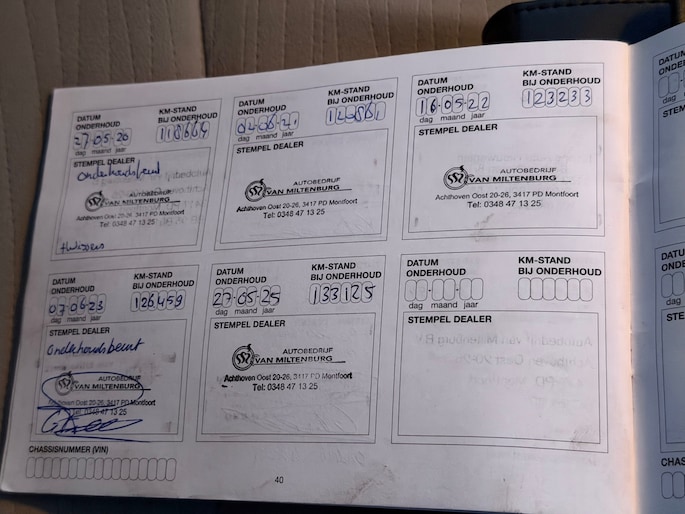 DATUM ONDERHOUD
KM-STAND BIJ ONDERHOUD
27-05-20
118664
dag maand jaar
STEMPEL DEALER
Onderhoudsbeurt
AUTOBEDRIJF
VAN MILTENBURG
Achthoven Oost 20-26, 3417 PD Montfoort
Tel: 0348 47 13 25
DATUM ONDERHOUD
KM-STAND BIJ ONDERHOUD
02-06-21
dag maand jaar
STEMPEL DEALER
AUTOBEDRIJF
VAN MILTENBURG
Achthoven Oost 20-26, 3417 PD Montfoort
Tel: 0348 47 13 25
DATUM ONDERHOUD
KM-STAND BIJ ONDERHOUD
16-05-22
123233
dag maand jaar
STEMPEL DEALER
AUTOBEDRIJF
VAN MILTENBURG
Achthoven Oost 20-26, 3417 PD Montfoort
Tel: 0348 47 13 25
DATUM ONDERHOUD
KM-STAND BIJ ONDERHOUD
07-06-23
126459
dag maand jaar
STEMPEL DEALER
Onderhoudsbeurt
AUTOBEDRIJF
VAN MILTENBURG
Achthoven Oost 20-26, 3417 PD Montfoort
Tel: 0348 47 13 25
DATUM ONDERHOUD
KM-STAND BIJ ONDERHOUD
27-05-25
133125
dag maand jaar
STEMPEL DEALER
AUTOBEDRIJF
VAN MILTENBURG
Achthoven Oost 20-26, 3417 PD Montfoort
Tel: 0348 47 13 25
DATUM ONDERHOUD
KM-STAND BIJ ONDERHOUD
dag maand jaar
STEMPEL DEALER
CHASSISNUMMER (VIN)
40